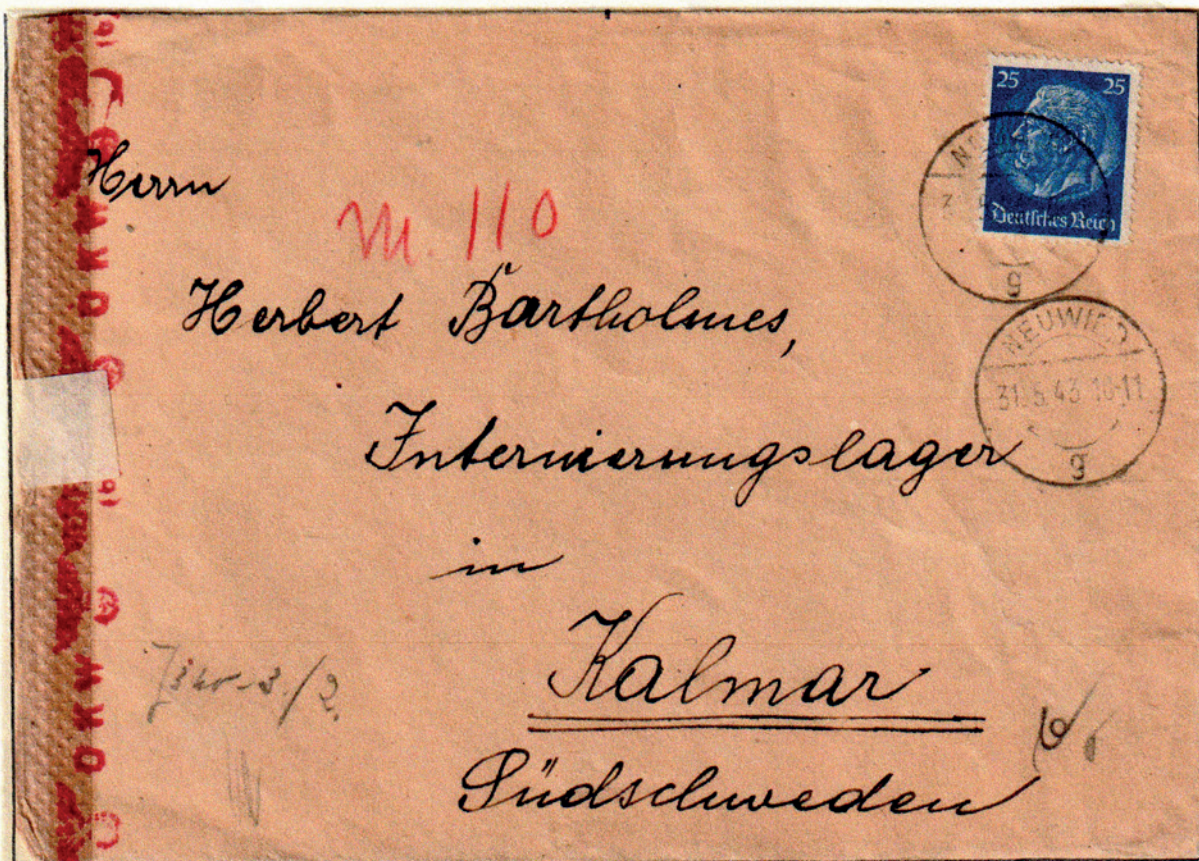 25 25
Deutsches Reich
g
NEUWIED
31.5.43 10-11
g
Herrn
M. 110
Herbert Bartholmes,
Internierungslager
in
Kalmar
Südschweden
OKW
OKW